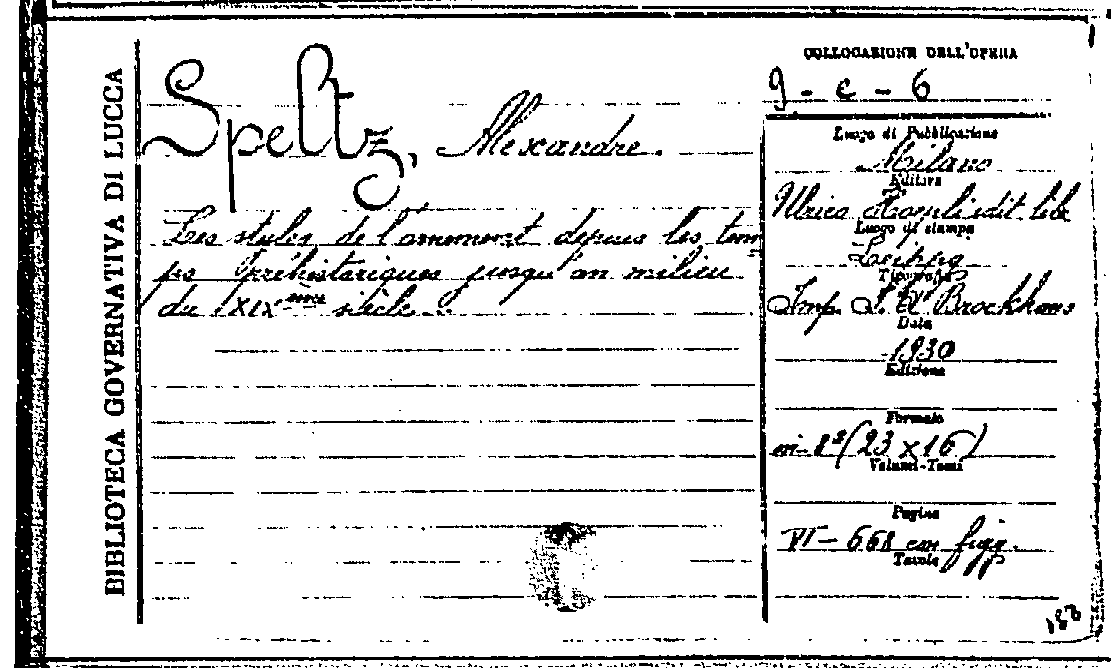 BIBLIOTECA GOVERNATIVA DI LUCCA
Speltz, Alexandre.
Les styles de l'ornement depuis les tem
ps préhistoriques jusqu'au milieu
du XIX ème siècle.
COLLOCAZIONE DELL'OPERA
9 - c - 6
Luogo di Pubblicazione
Milano
Editore
Ulrico Hoepli edit. lib
Luogo di stampa
Leipzig
Tipografia
Imp. F. A. Brockhaus
Data
1930
Edizione
Formato
in-8º (23 x 16)
Volumi-Tomi
Pagine
VI - 668 con figg.
Tavole